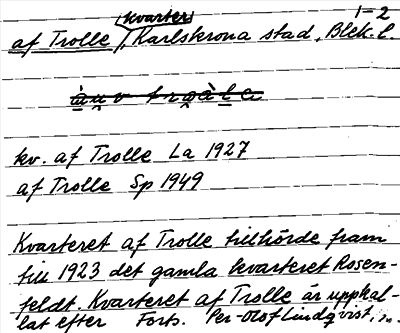 1-2
kvarter
af Trolle, Karlskrona stad, Blek. l.
kv. af Trolle La 1927
af Trolle Sp 1949
Kvarteret af Trolle tillhörde fram
till 1923 det gamla kvarteret Rosen-
feldt. Kvarteret af Trolle är uppkal-
lat efter Forts. Per-Olof Lindqvist.